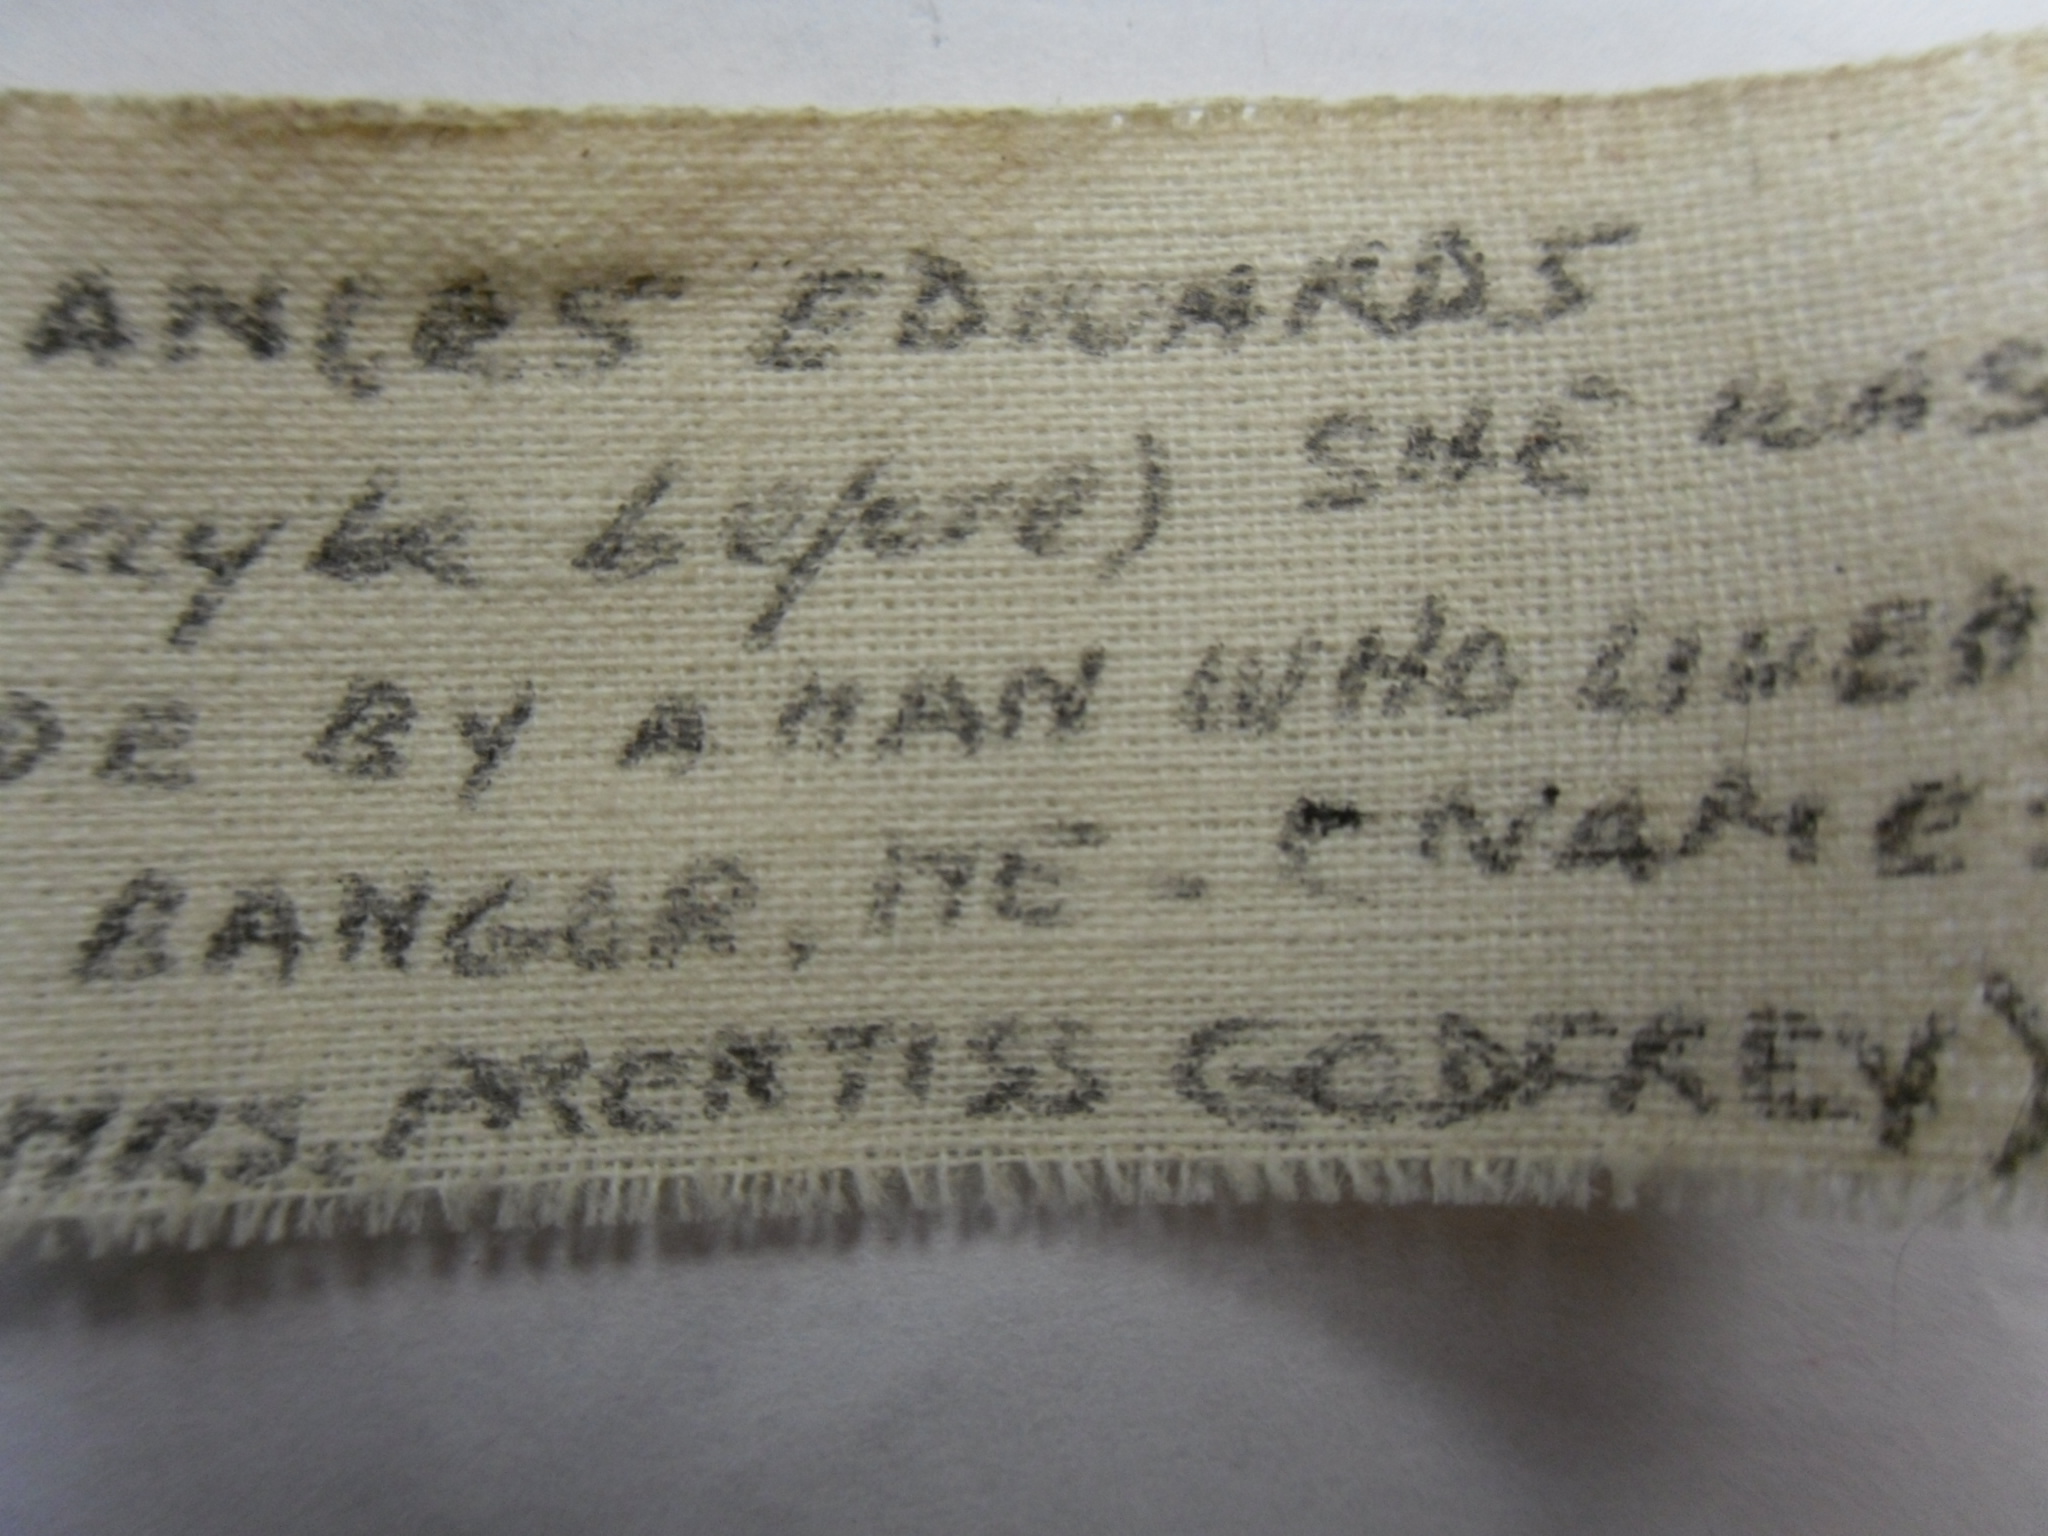 ANCES EDWARDS
maybe before) SHE WAS
DE BY A MAN WHO LIVED
BANGOR, ME - NAME:
MRS. PRENTISS GODFREY)